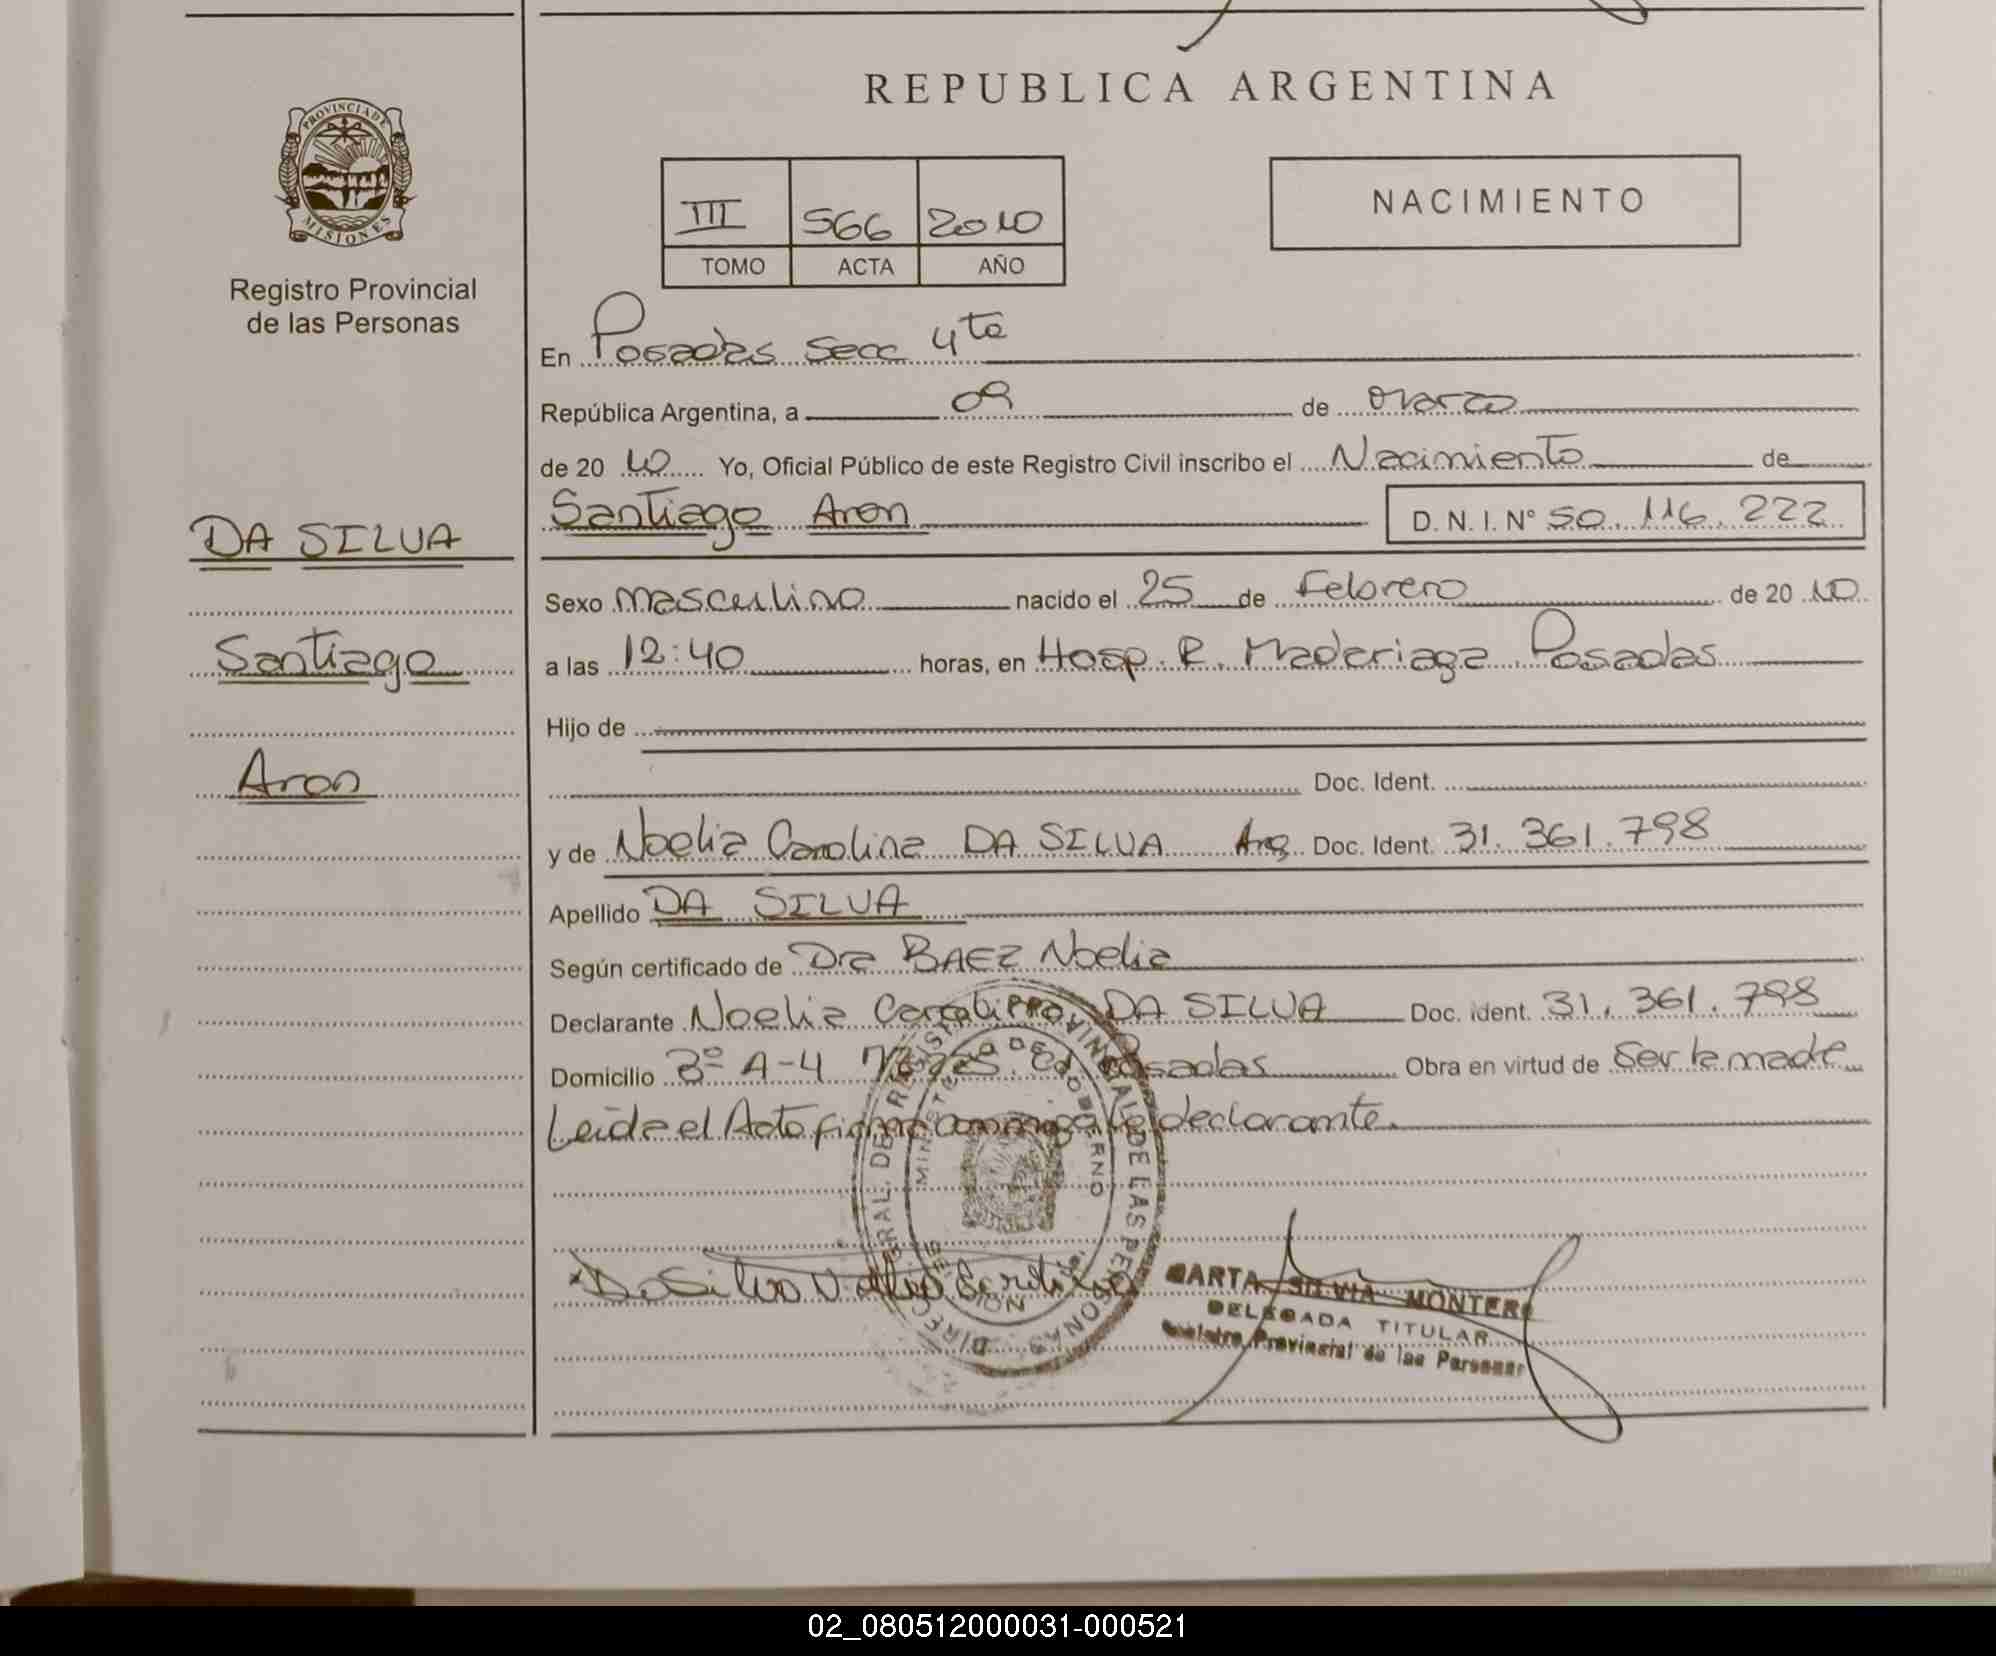 REPUBLICA ARGENTINA
PROVINCIA DE
MISIONES
Registro Provincial
de las Personas
III 566 2010
TOMO ACTA AÑO
NACIMIENTO
En Posadas Secc 4ta
República Argentina, a 09 de Marzo
de 20 10 Yo, Oficial Público de este Registro Civil inscribo el Nacimiento de
Santiago Aron D. N. I. Nº 50.116.222
DA SILVA
Santiago
Aron
Sexo masculino nacido el 25 de Febrero de 20 10
a las 12:40 horas, en Hosp. R. Maderiaga Posadas
Hijo de
Doc. Ident.
y de Noelia Carolina DA SILVA Arg Doc. Ident. 31.361.798
Apellido DA SILVA
Según certificado de Dra BAEZ Noelia
Declarante Noelia Carolina DA SILVA Doc. ident. 31.361.798
Domicilio 3º A-4 Posadas Obra en virtud de Ser la madre
Leida el Acta firma conmigo la declarante.
Da Silva Noelia Carolina
MARTA SILVIA MONTERO
DELEGADA TITULAR
Registro Provincial de las Personas
02_080512000031-000521